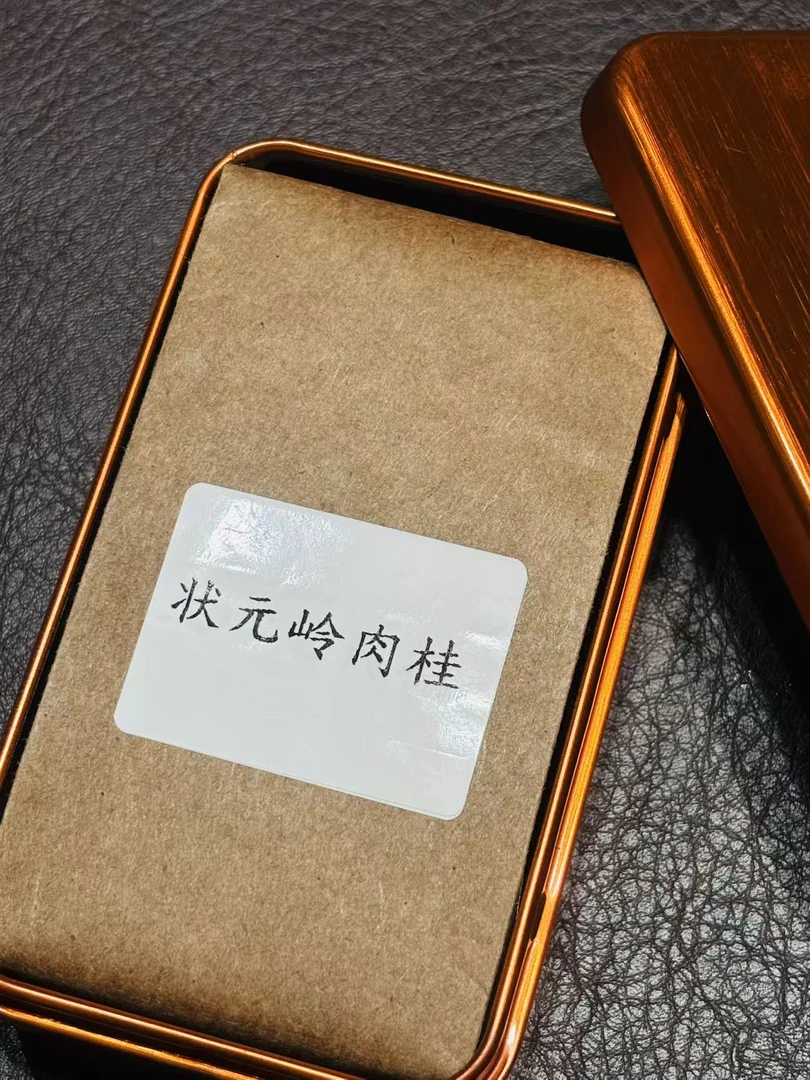 状元岭肉桂